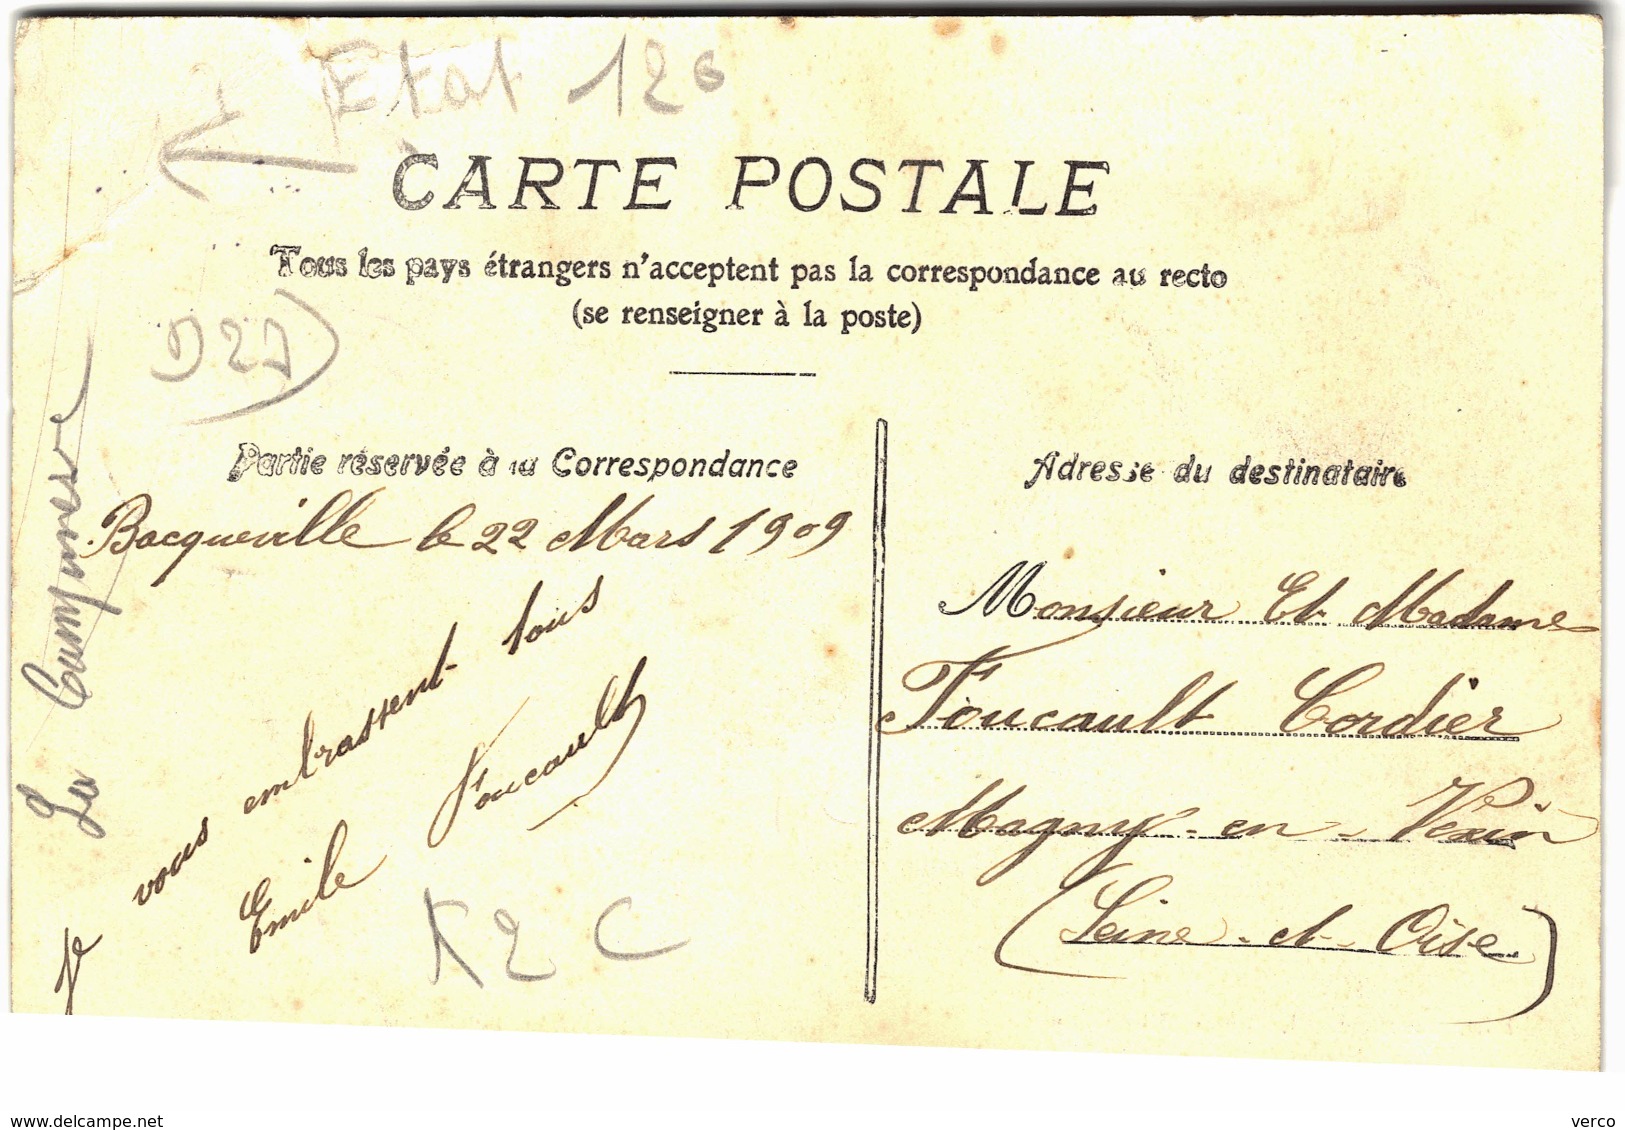 Etat 126
CARTE POSTALE
Tous les pays étrangers n'acceptent pas la correspondance au recto
(se renseigner à la poste)
D27
Partie réservée à la Correspondance
Adresse du destinataire
Bacqueville le 22 Mars 1909
Je vous embrassent tous
Emile Foucault
La
K2C
Monsieur Et Madame
Foucault Cordier
Magny-en-Vexin
(Seine-et-Oise)
www.delcampe.net
verco